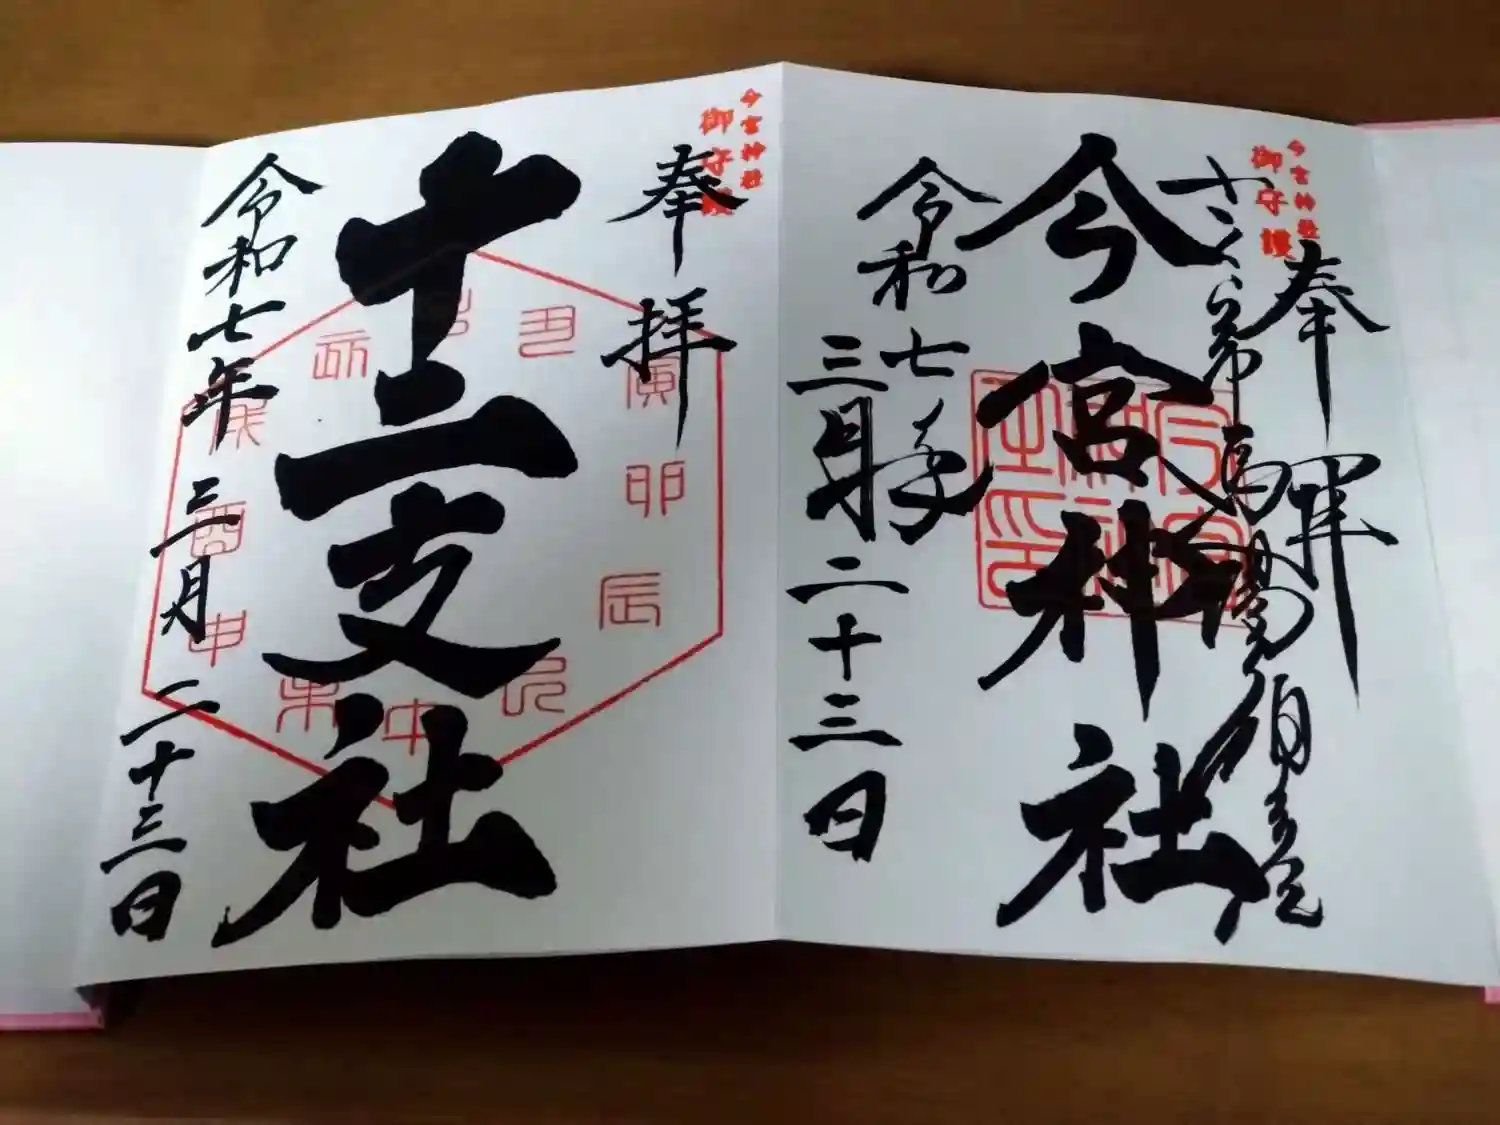 今宮神社
御守護
奉拝
今宮神社
令和七年
三月二十三日
今宮神社
御守護
奉拝
十二支社
丑
寅
卯
辰
巳
午
未
申
酉
戌
亥
令和七年三月二十三日